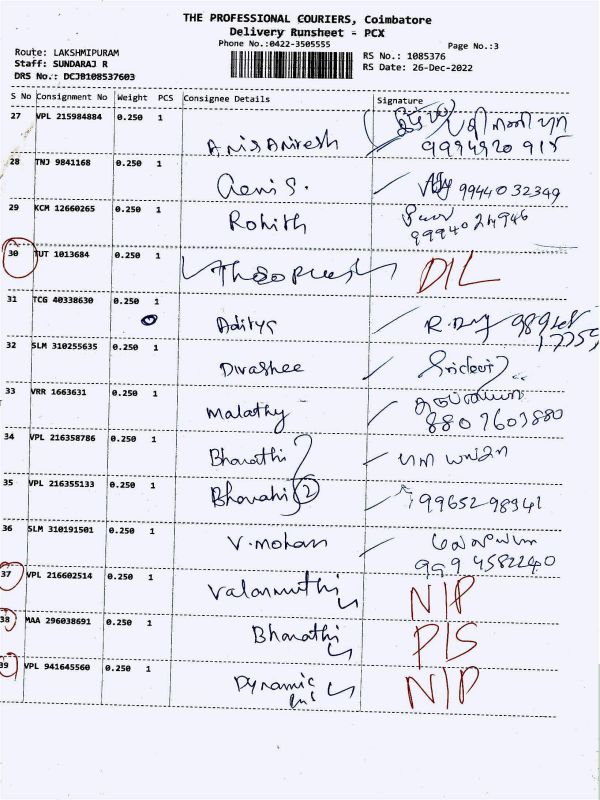 THE PROFESSIONAL COURIERS, Coimbatore
Delivery Runsheet - PCX
Phone No.:0422-3505555
Page No.:3
Route: LAKSHMIPURAM
Staff: SUNDARAJ R
DRS No.: DCJ0108537603
RS No.: 1085376
RS Date: 26-Dec-2022
S No Consignment No Weight PCS Consignee Details Signature
27 VPL 215984884 0.250 1
28 TNJ 9841168 0.250 1 9944032349
29 KCM 12660265 0.250 1 Rohith 9994024946
30 TUT 1013684 0.250 1 DIL
31 TCG 40338630 0.250 1 Aditya
32 SLM 310255635 0.250 1 Divashee
33 VRR 1663631 0.250 1 Malathy 8807603880
34 VPL 216358786 0.250 1 Bharathi
35 VPL 216355133 0.250 1 2 9965298941
36 SLM 310191501 0.250 1 V.mohan 9994582240
37 VPL 216602514 0.250 1 Valarmathi N/P
38 MAA 296038691 0.250 1 Bharathi P/S
39 VPL 941645560 0.250 1 Dynamic N/P